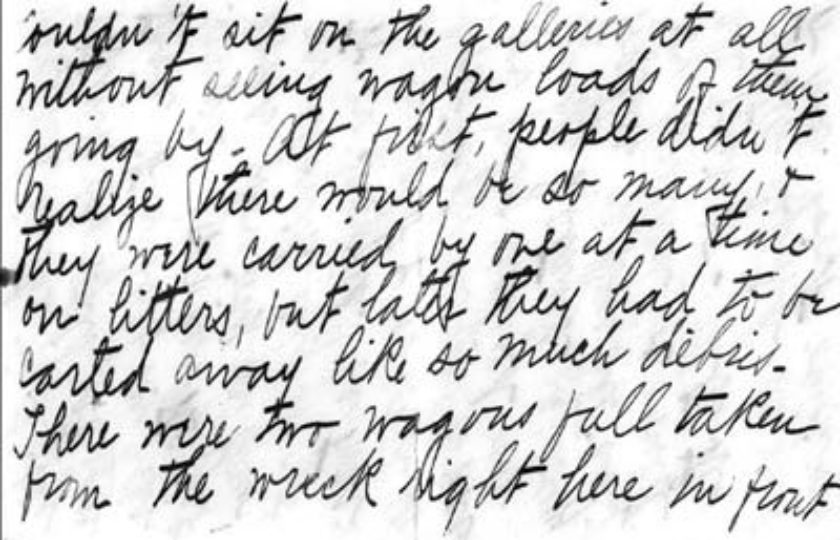 ouldn't sit on the galleries at all
without seeing wagon loads of them
going by. At first, people didn't
realize there would be so many, &
they were carried by one at a time
on litters, but later they had to be
carted away like so much débris.
There were two wagons full taken
from the wreck right here in front